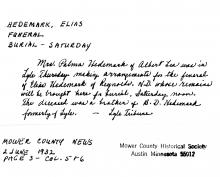 HEDEMARK, ELIAS
FUNERAL
BURIAL - SATURDAY
Mrs. Palma Hedemark of Albert Lea was in
Lyle Thursday making arrangements for the funeral
of Elias Hedemark of Reynolds, N.D. whose remains
will be brought here for burial, Saturday, noon.
The deceased was a brother of B. D. Hedemark
formerly of Lyle. - Lyle Tribune
MOWER COUNTY NEWS
2 JUNE 1932
PAGE 3 - COL. 5 & 6
Mower County Historical Society
Austin Minnesota 55912